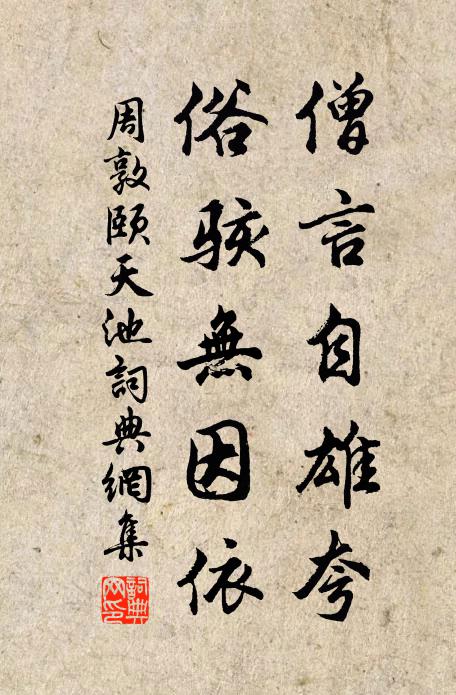 僧言自雄夸
俗骇無因依
周敦頤天池詞典網集
詞典網印